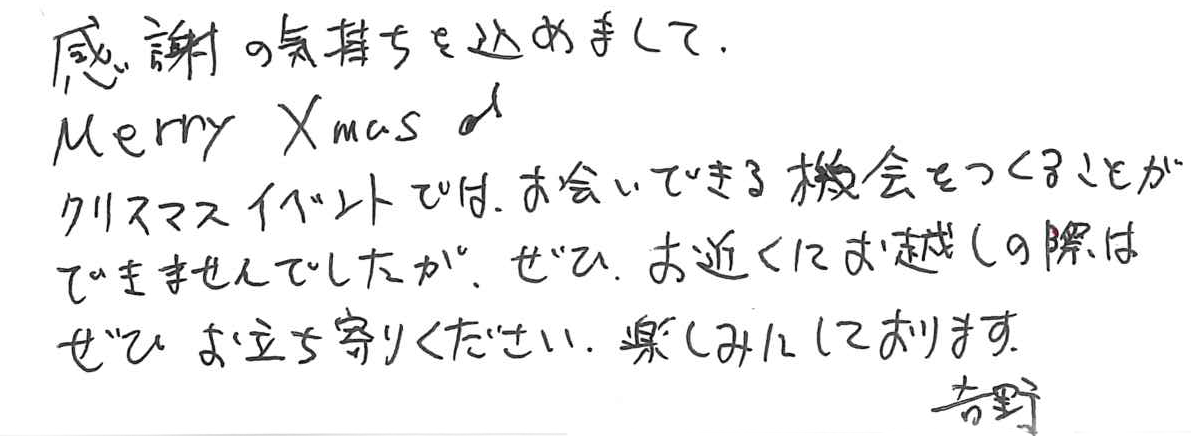 感謝の気持ちを込めまして.
Merry Xmas ♪
クリスマスイベントでは、お会いできる機会をつくることが
できませんでしたが、ぜひ、お近くにお越しの際は
ぜひ お立ち寄りください、楽しみにしております.
吉野